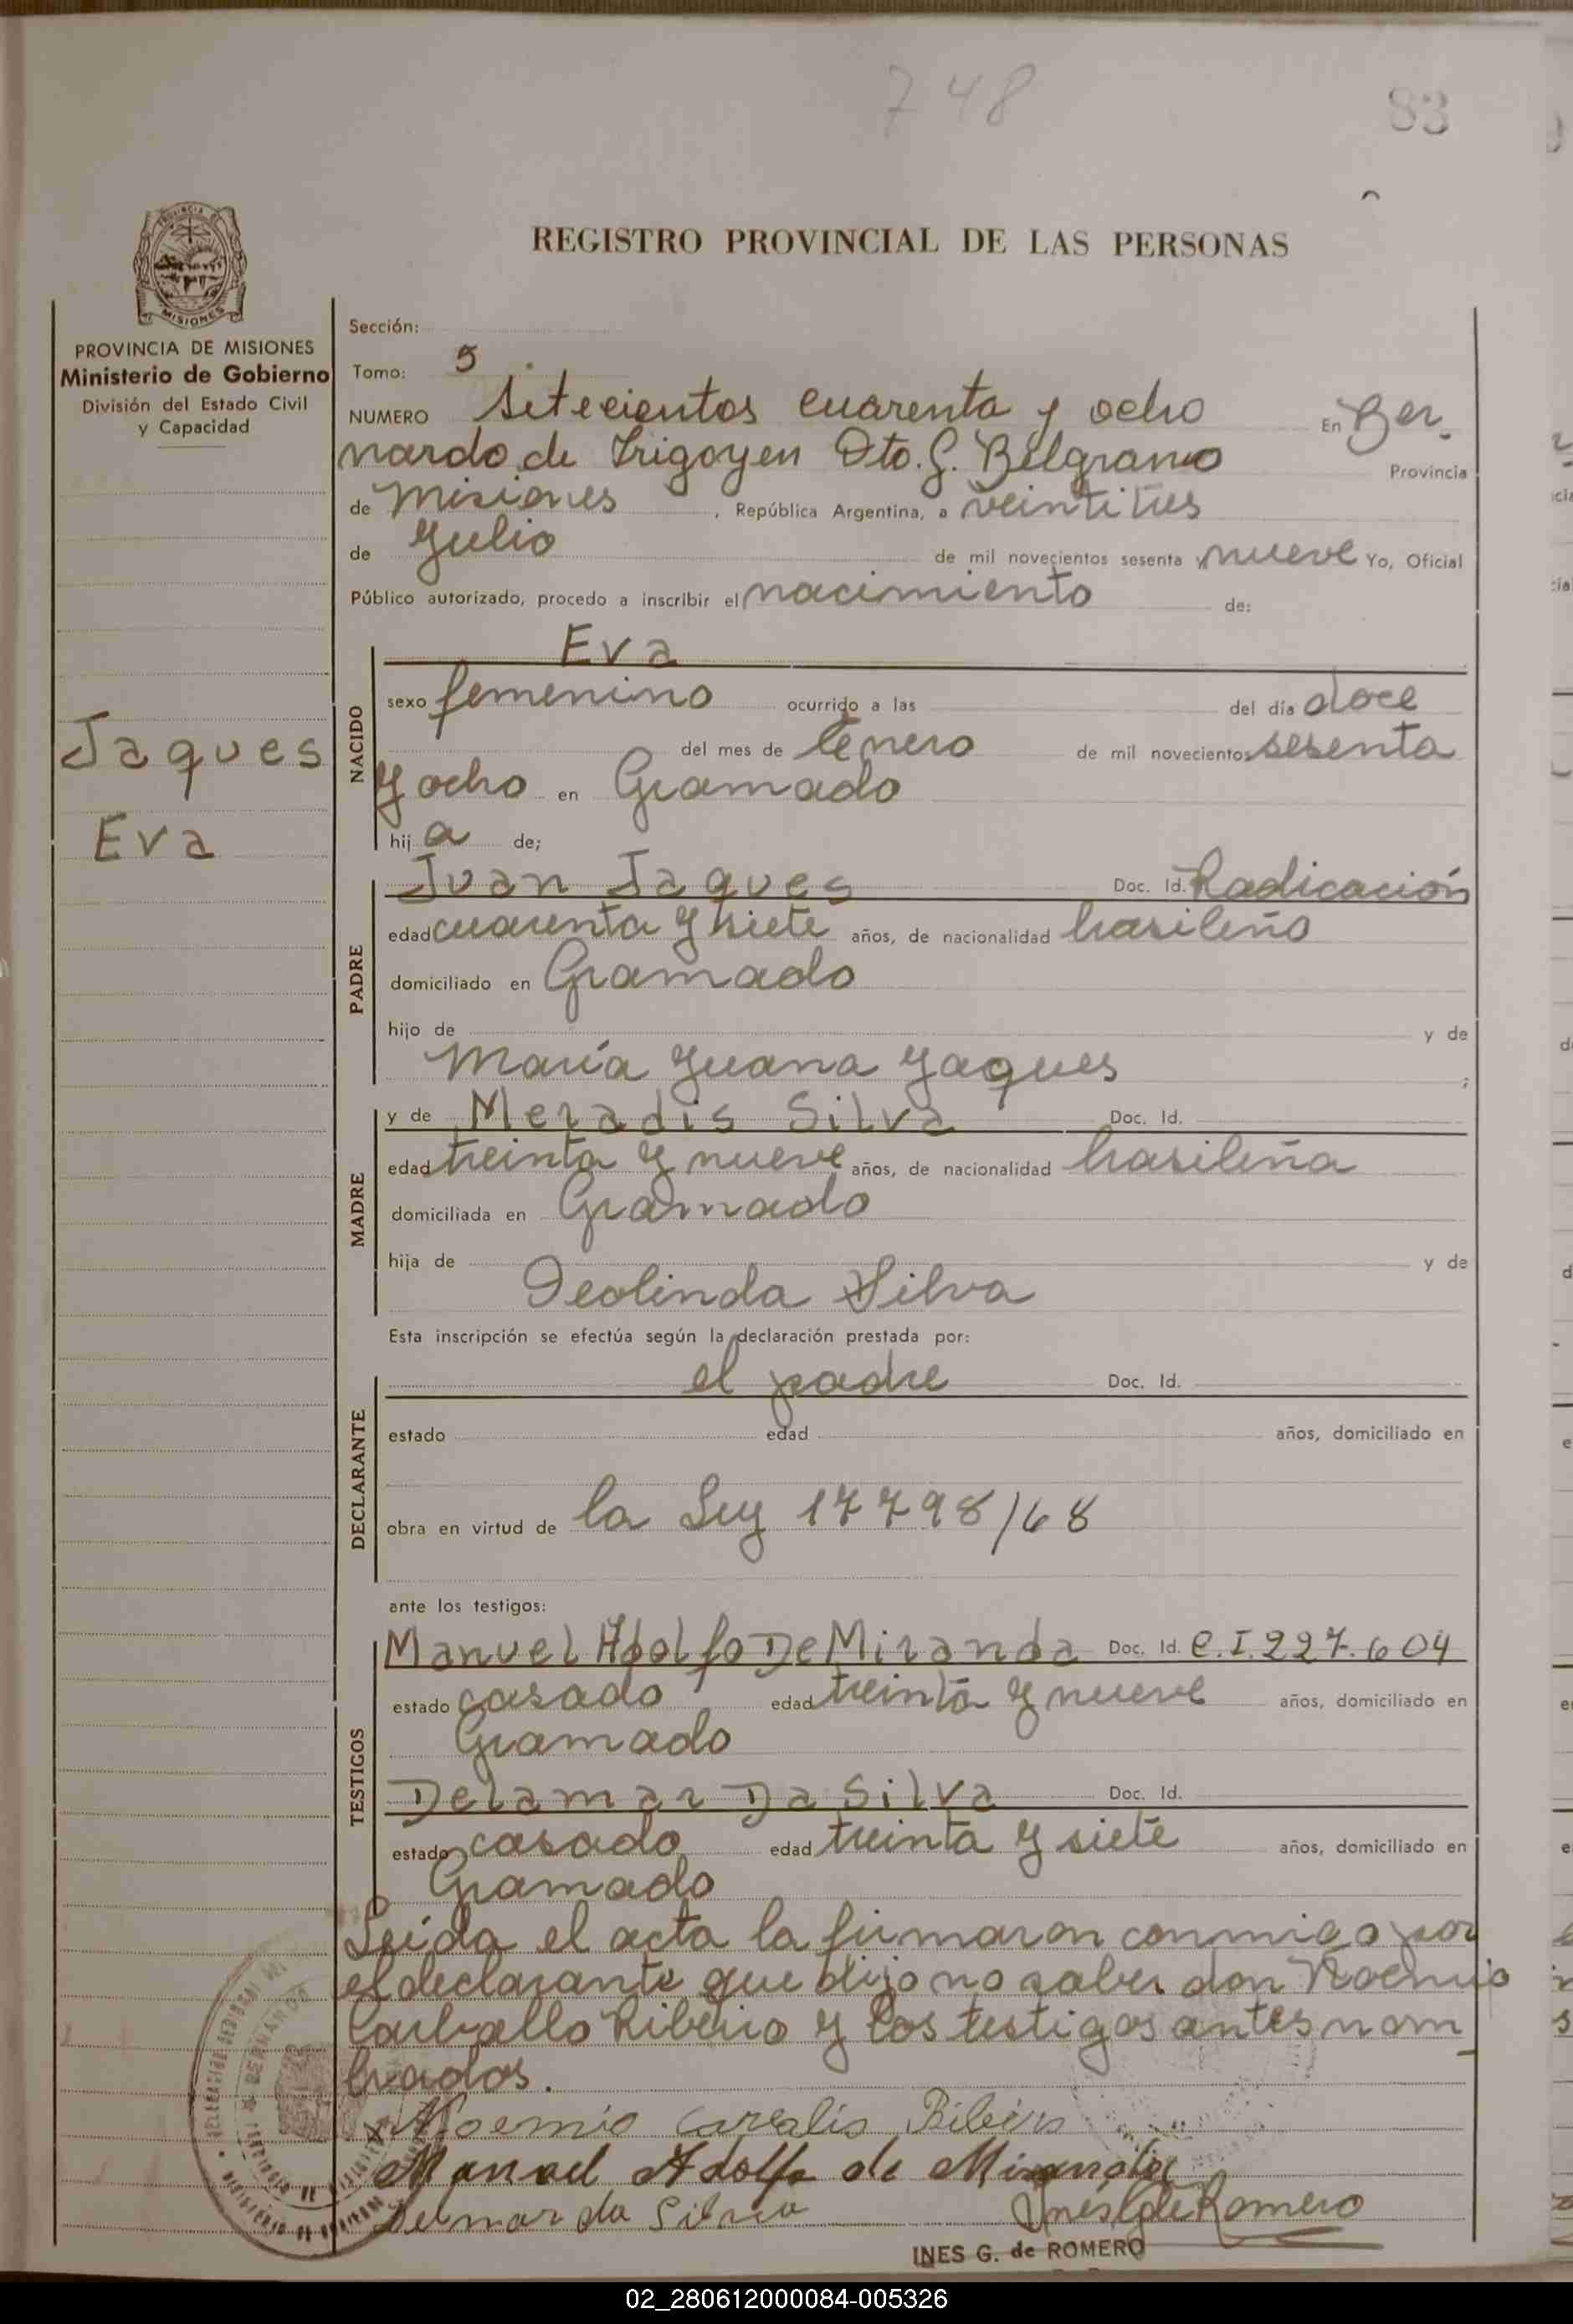 748
83
REGISTRO PROVINCIAL DE LAS PERSONAS
MISIONES
PROVINCIA DE MISIONES
Ministerio de Gobierno
División del Estado Civil
y Capacidad
Jaques
Eva
Sección:
Tomo: 5
NUMERO Setecientos cuarenta y ocho En Ber-
nardo de Irigoyen Dto. G. Belgrano Provincia
de Misiones, República Argentina, a veintitres
de Julio de mil novecientos sesenta y nueve Yo, Oficial
Público autorizado, procedo a inscribir el nacimiento de:
NACIDO
Eva
sexo femenino ocurrido a las del día doce
del mes de Enero de mil novecientos sesenta
y ocho en Gramado
hija de;
PADRE
Juan Jaques Doc. Id. Radicación
edad cuarenta y siete años, de nacionalidad brasileño
domiciliado en Gramado
hijo de y de
María Juana Yaques ;
MADRE
y de Meradis Silva Doc. Id.
edad treinta y nueve años, de nacionalidad brasileña
domiciliada en Gramado
hija de y de
Deolinda Silva
Esta inscripción se efectúa según la declaración prestada por:
DECLARANTE
el padre Doc. Id.
estado edad años, domiciliado en
obra en virtud de la Ley 17798/68
ante los testigos:
TESTIGOS
Manuel Adolfo De Miranda Doc. Id. C.I. 227.604
estado casado edad treinta y nueve años, domiciliado en
Gramado
Delamar Da Silva Doc. Id.
estado casado edad treinta y siete años, domiciliado en
Gramado
Leída el acta la firmaron conmigo por
el declarante que dijo no saber don Noemio
Carballo Ribeiro y los testigos antes nom-
brados.
Noemio Ribeiro
Manoel Adolfo de Miranda
Delmar da Silva Inés G de Romero
INES G. de ROMERO
02_280612000084-005326